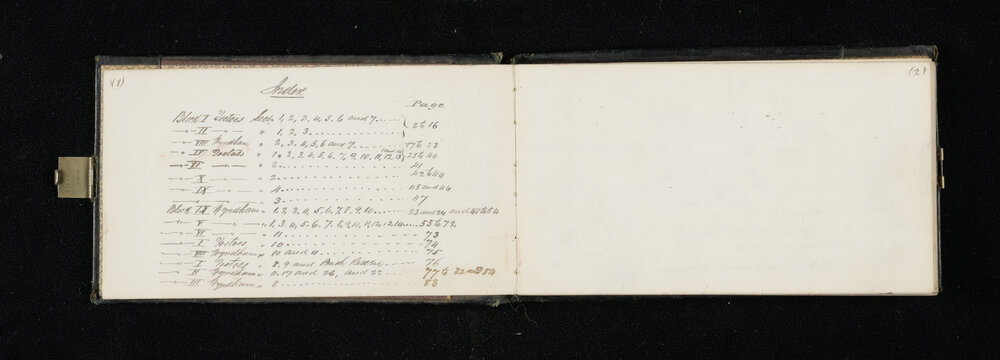 (1)
Index
Page
Block I Toetoes Sect. 1, 2, 3, 4, 5, 6 and 7 } 2 to 16
—"— II —"— " 1, 2, 3
—"— VIII Wyndham " 2, 3, 4, 5, 6 and 7 17 to 23
—"— IV Toetoes " 1, 2, 3, 4, 5, 6, 7, 9, 10, 11, 12, 13 (and 14) 25 to 40
—"— VI —"— " 2 41
—"— X —"— " 2 42 to 44
—"— IX —"— " 4 45 and 46
—"— " 3 47
Block IX Wyndham " 1, 2, 3, 4, 5, 6, 7, 8, 9, 10 23 and 24 and 48 to 54
—"— V —"— " 1, 3, 4, 5, 6, 7, 8, 9, 10, 11, 12, 14 55 to 72
—"— VI —"— " 11 73
—"— I Toetoes " 10 74
—"— VIII Wyndham " 10 and 11 75
—"— I Toetoes " 8, 9 and Bush Reserve 76
—"— II Wyndham " 11, 17 and 26, and 22 77 to 82 and 84
—"— III Wyndham " 8 83
(2)